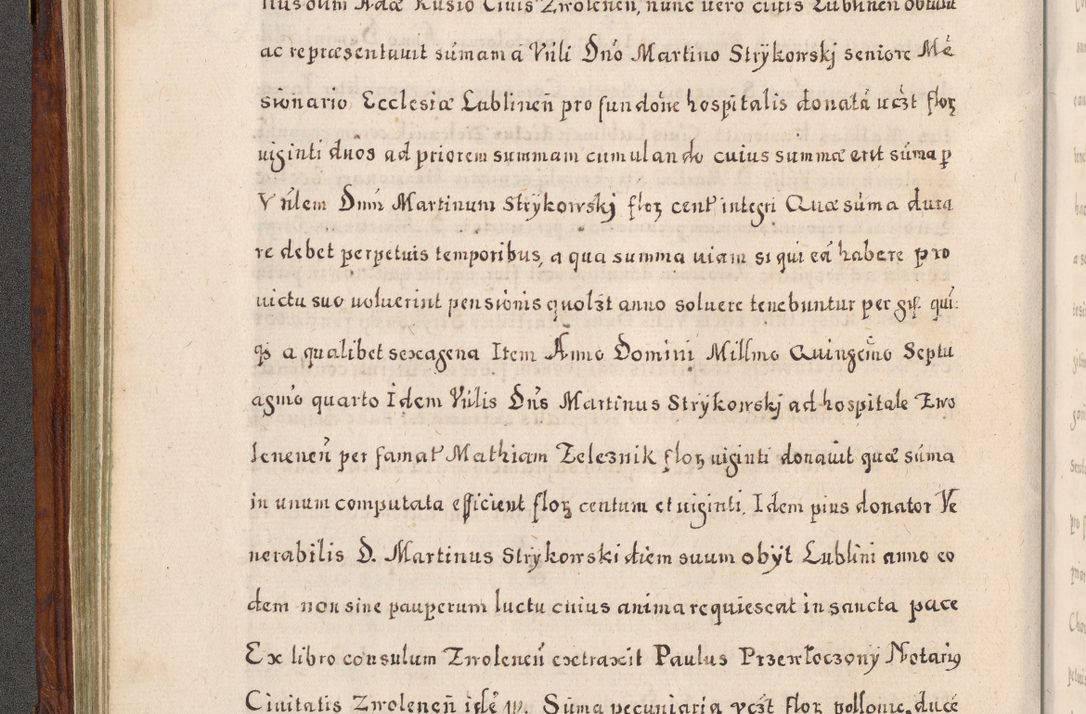 lius olim Adæ Rusio Ciuis Zwolenen, nunc uero ciuis Lublinen
ac repræsentauit súmam a Vńli Dńo Martino Strÿkowskj seniore Mé
sionario Ecclesiæ Lublineń pro fundōne hospitalis donatá uczt floꝝ
uiginti duos ad priorem summam cumulando cuius summæ erit súma p
Vńlem Dnm̄ Martinum Strÿkowskj floꝝ cent' integri Quæ súma dura
re debet perpetuis temporibus, a qua summa uiam si qui eá habere pro
uictu suo uoluerint pensionis quolzt anno soluere tenebuntur per gꝝ qui:
qꝫ a qualibet sexagena Item Anno Domini Millmo Quingemo Septu
agmo quarto Idem Vńlis Dńs Martinus Strÿkowskj ad hospitale Zwo
leneneń per famat' Mathiam Zelesnik floꝝ uiginti donauit quæ súma
in unum computata efficient floꝝ centum et uiginti. Idem pius donator Ve
nerabilis D. Martinus Strykowski diem suum obÿt Lublini anno eo
dem non sine pauperum luctu cuius anima requiescat in sancta pace
Ex libro consulum Zwoleneń extraxit Paulus Przewłoczony Notariꝰ
Ciuitatis Zwoleneń Suma pecuniaria uczt floꝝ pollonic. ducé